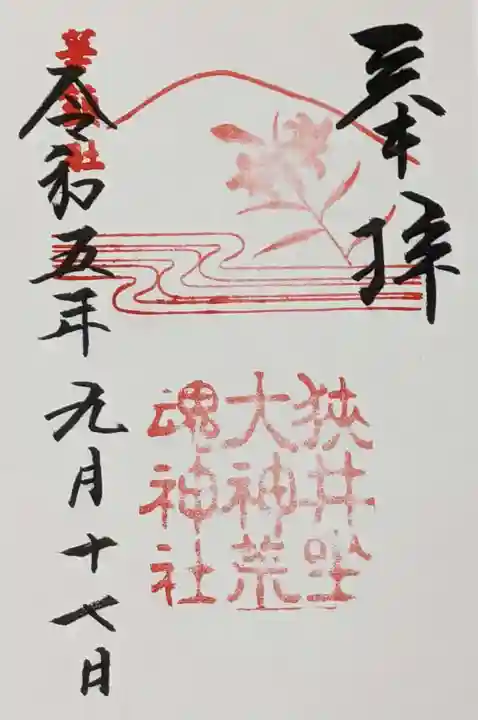 奉拝
狭井坐
大神荒
魂神社
令和五年九月十七日